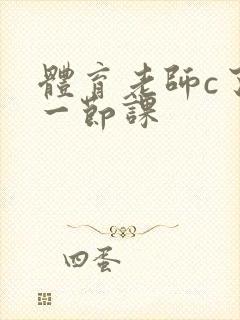 體育老師c了
一節課
四蛋